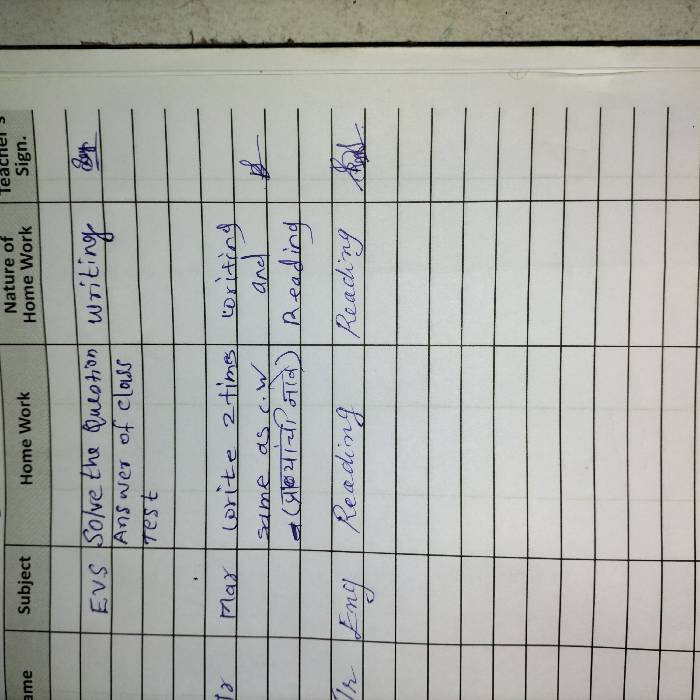 ame Subject Home Work Nature of Home Work Teacher's Sign.
EVS Solve the Question writing
Answer of class
Test
Mar Write 2 times writing
same as C.W and
(प्राण्यांची नावे) Reading
Eng Reading Reading